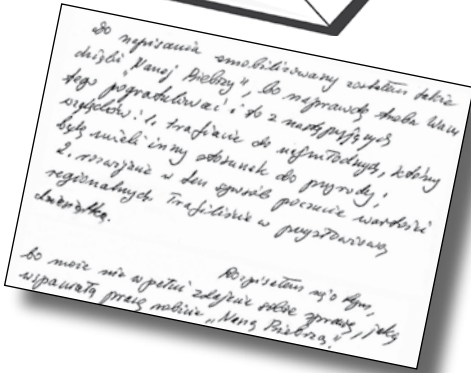 do napisania zmobilizowany zostałem także
dzięki "Naszej Biebrzy", bo naprawdę trzeba Wam
tego pogratulować i to z następujących
względów: 1. trafiacie do najmłodszych, którzy
będą mieli inny stosunek do przyrody;
2. rozwijacie w ten sposób poczucie wartości
regionalnych. Trafiliście w przysłowiową
dziesiątkę.
Rozpisałem się o tym,
bo może nie w pełni zdajecie sobie sprawę, jaką
wspaniałą pracę robicie „Naszą Biebrzą."